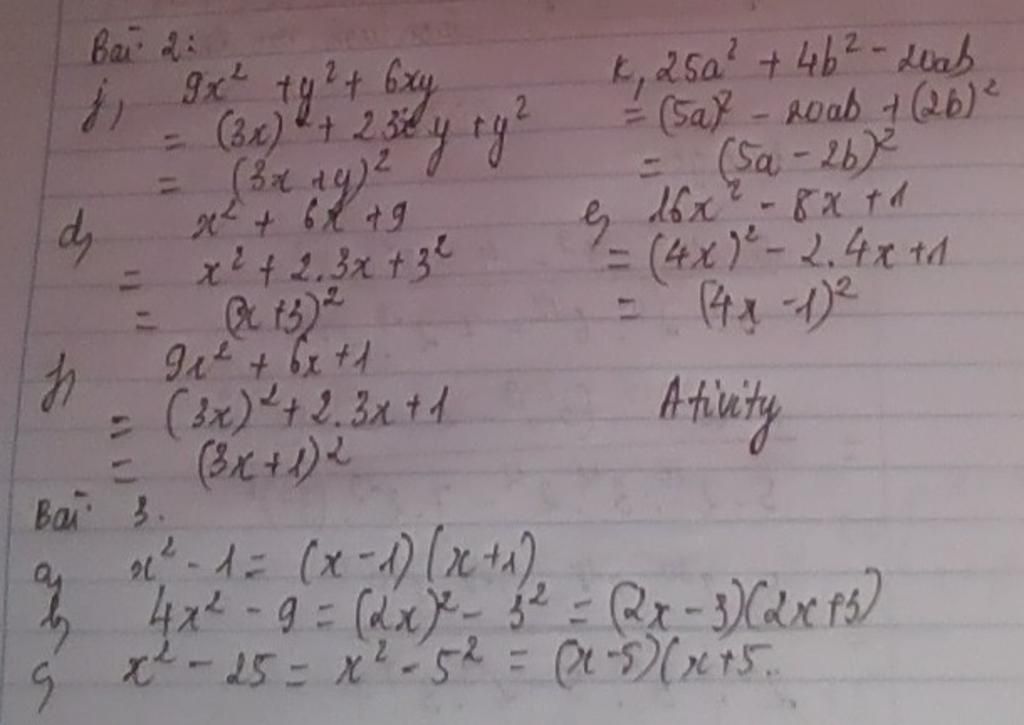 Bài 2:
j, 9x² + y² + 6xy
= (3x)² + 23x y + y²
= (3x + y)²
k, 25a² + 4b² - 20ab
= (5a)² - 20ab + (2b)²
= (5a - 2b)²
d, x² + 6x + 9
= x² + 2.3x + 3²
= (x + 3)²
e, 16x² - 8x + 1
= (4x)² - 2.4x + 1
= (4x - 1)²
f, 9x² + 6x + 1
= (3x)² + 2.3x + 1
= (3x + 1)²
Ativity
Bài 3.
a, x² - 1 = (x - 1)(x + 1)
b, 4x² - 9 = (2x)² - 3² = (2x - 3)(2x + 3)
c, x² - 25 = x² - 5² = (x - 5)(x + 5.